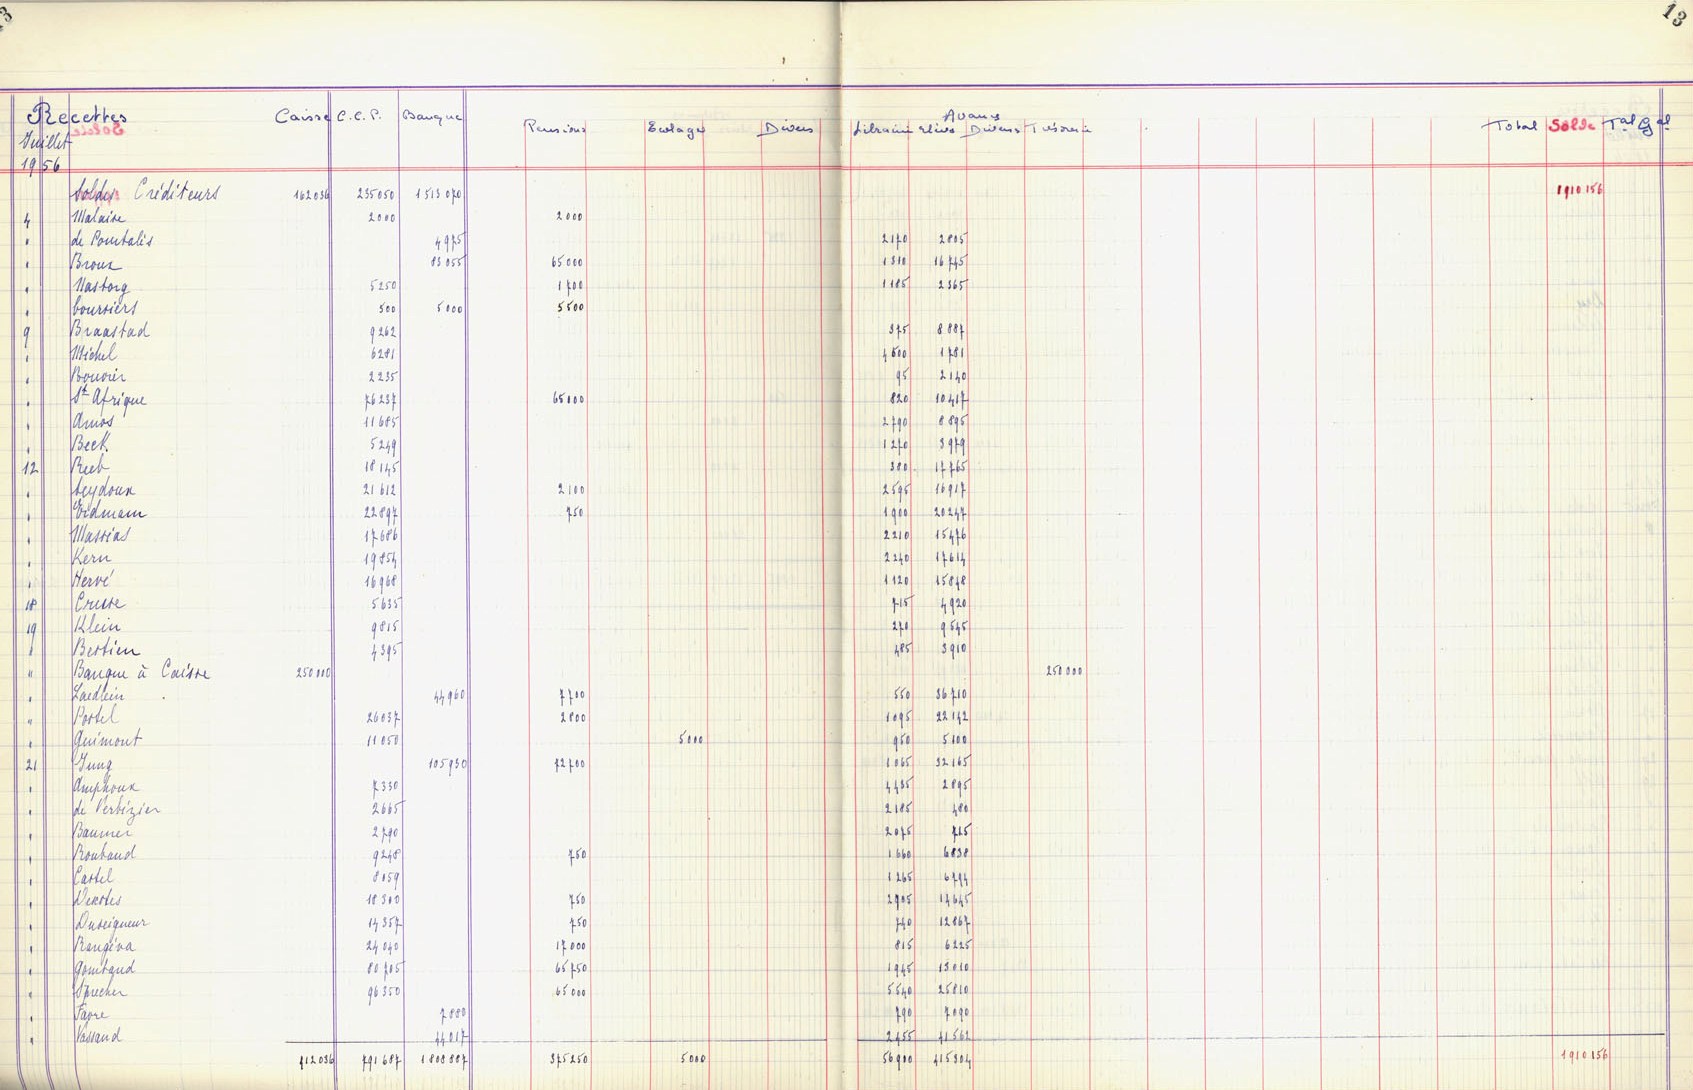 13
Recettes Caisse C.C.P. Banque Pensions Ecolage Divers Librairie elèves Avance Divers Trésorerie Total Solde Tal Gal
Juillet
1956
Soldes Créditeurs 162036 235050 1513070 1910156
4 Malaise 2000 2000
" de Pourtalès 4975 2170 2805
" Broux 83055 65000 1310 16745
" Nastorg 5250 1700 1185 2365
" boursiers 500 5000 5500
9 Braastad 9262 375 8887
" Michel 6281 4500 1781
" Bouvier 2235 95 2140
" St Afrique 76237 65000 820 10417
" Amos 11685 2790 8895
" Beck 5249 1270 3979
12 Rieb 18145 380 17765
" Seydoux 21612 2100 2595 16917
" Erdmann 22897 750 1900 20247
" Massias 17686 2210 15476
" Kern 19854 2240 17614
" Hervé 16968 1120 15848
18 Cruse 5635 715 4920
19 Klein 9815 270 9545
" Bestien 4395 485 3910
" Banque à Caisse 250000 250000
" Laedlein 44960 7700 550 36710
" Postel 26037 2800 1095 22142
" Guimont 11050 5000 950 5100
21 Jung 105930 72700 1065 32165
" Amphoux 7330 4435 2895
" de Verbizier 2665 2185 480
" Baumer 2790 2075 715
" Roubaud 9248 750 1660 6838
" Castel 8059 1265 6794
" Denoles 18300 750 2905 14645
" Duseigneur 14357 750 740 12867
" Rangéva 24040 17000 815 6225
" Gombaud 80705 65750 1945 13010
" Sprecher 96350 65000 5540 25810
" Favre 7880 790 7090
" Vassaud 44017 2455 41562
412036 791687 1808887 375250 5000 56900 415304 1910156